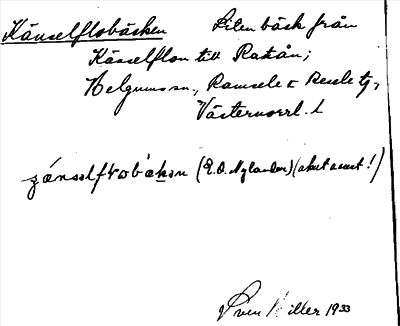 Känselflobäcken Liten bäck från
Känselflon till Ratån;
Helgums sn., Ramsele & Resele tg,
Västernorrl. l
(E.O. Nylander) (akut accent!)
Sven Hiller 1933